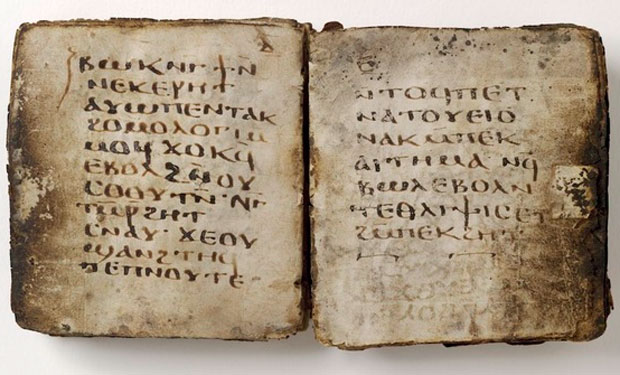 ⲃⲱⲕⲛⲅϯⲛ̄
ⲛⲉⲕⲉⲣⲏⲧ
ⲁⲩⲱⲡⲉⲛⲧⲁⲕ
ϩⲟⲙⲟⲗⲟⲅⲓⲁ
ⲙⲟϥ ϫⲟⲕϥ
ⲉⲃⲟⲗϩⲛ̄ⲟⲩ
ⲥⲟⲟⲩⲧⲛ̄· ⲛⲅ̄
ⲧⲙ̄ⲣϩⲏⲧ
ⲥⲛⲁⲩ· ϫⲉⲟⲩ
ϣⲁⲛϩⲧⲏϥ
ⲡⲉⲡⲛⲟⲩⲧⲉ
ⲛⲧⲟϥⲡⲉⲧ
ⲛⲁⲧⲟⲩⲉⲓⲟ
ⲛⲁⲕⲙ̄ⲡⲉⲕ
ⲁⲓⲧⲏⲙⲁ ⲛϥ̄
ⲃⲱⲗⲉⲃⲟⲗⲛ
ⲧⲉⲑⲗⲓⲯⲓⲥⲉⲧ
ϩⲙ̄ⲡⲉⲕϩⲏⲧ